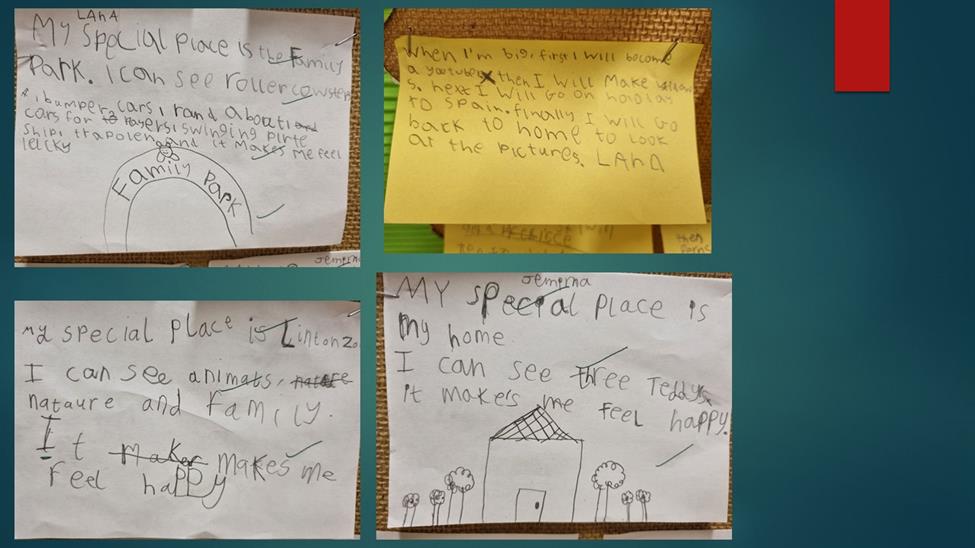 LAhA
My special place is the Family
Park. I can see roller cowsters
, bumper cars, round abouts
cars for rayers, swinging pirte
ship, trapolen and it Makes me feel
leicky
Family Park
When I'm big, first I will become
a youtuber then I will Make
s. next I will go on holiday
to Spain. finally I will go
back to home to look
at the pictures. LAhA
then
Jemima
my special place is Linton zo
I can see animals, nature
natuure and family.
It maker makes me
feel happy
Jemima
MY special place is
My home
I can see three Teddys.
it makes me feel happy.